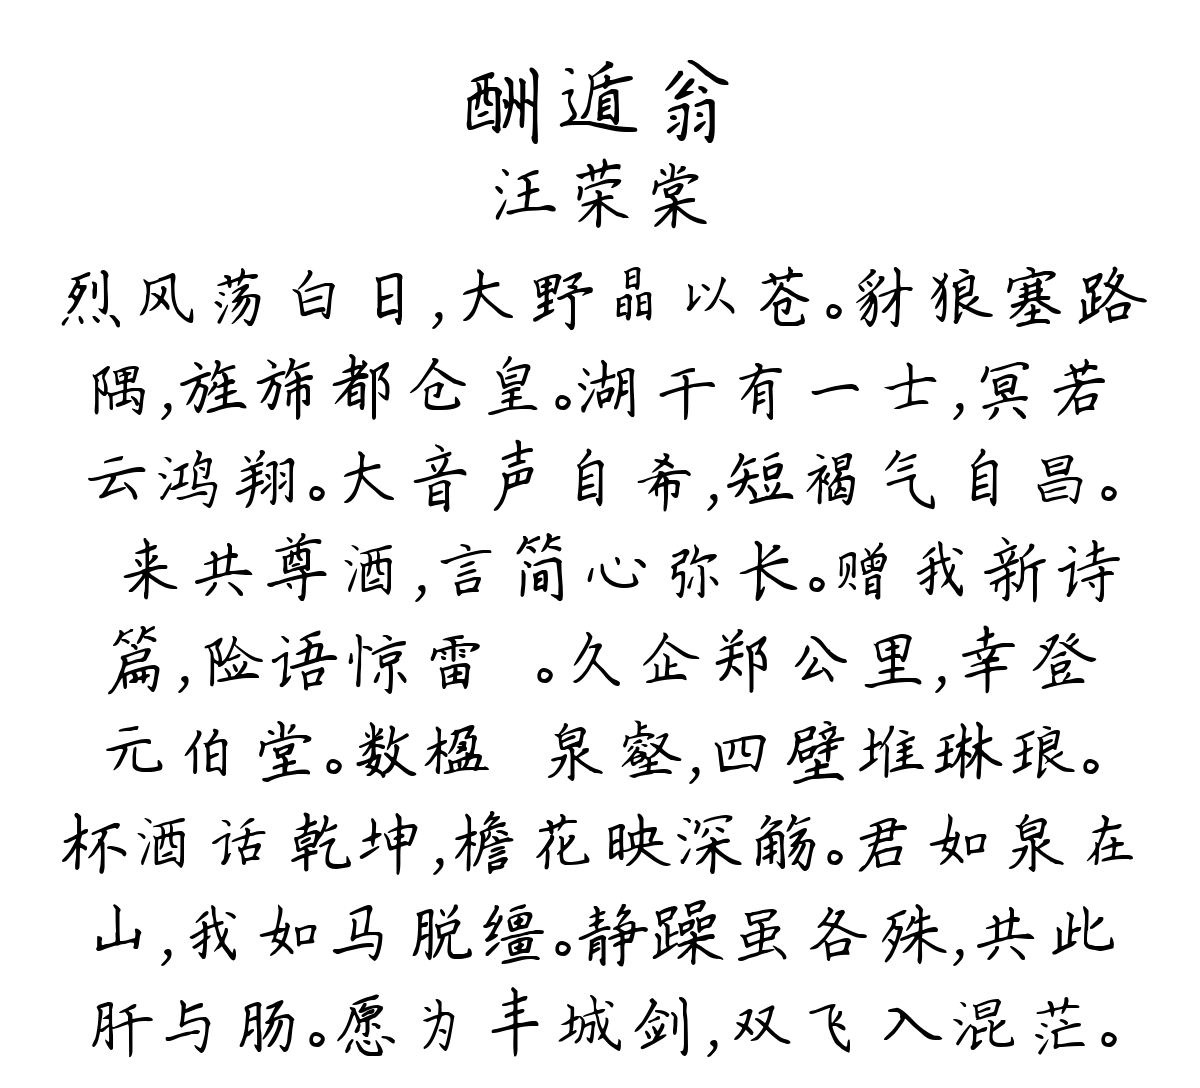 酬遁翁
汪荣棠
烈风荡白日,大野晶以苍。豺狼塞路
隅,旌旆都仓皇。湖干有一士,冥若
云鸿翔。大音声自希,短褐气自昌。
来共尊酒,言简心弥长。赠我新诗
篇,险语惊雷 。久企郑公里,幸登
元伯堂。数楹 泉壑,四壁堆琳琅。
杯酒话乾坤,檐花映深觞。君如泉在
山,我如马脱缰。静躁虽各殊,共此
肝与肠。愿为丰城剑,双飞入混茫。